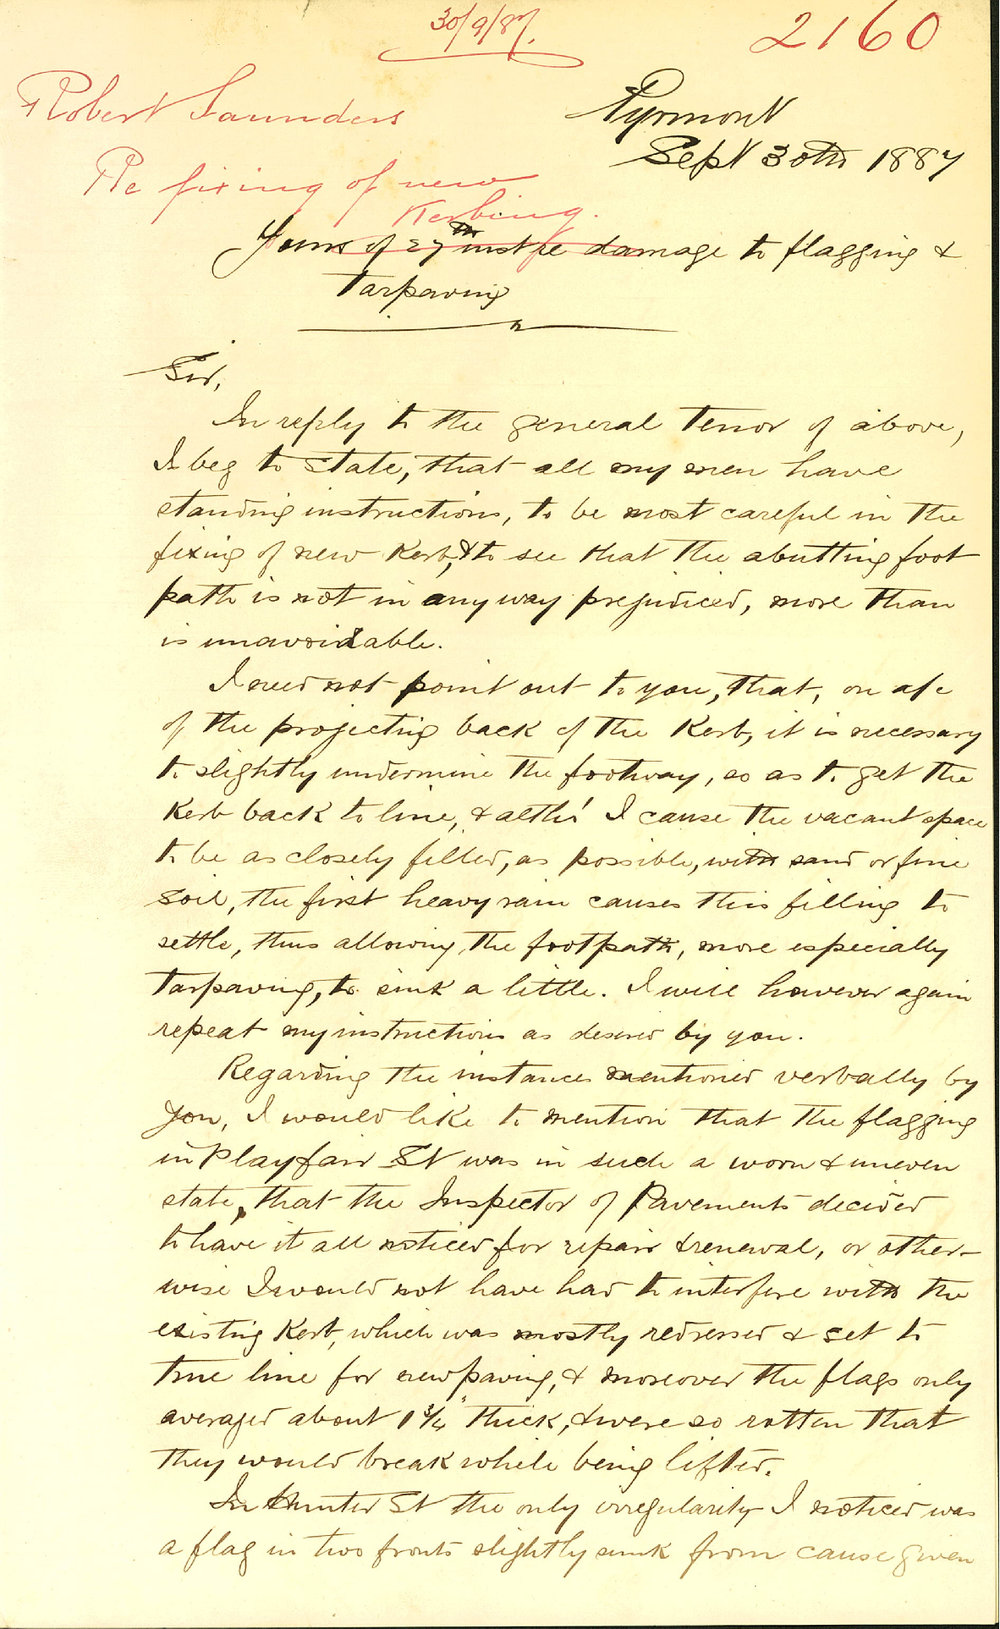 30/9/87.
2160
Robert Saunders
Pyrmont
Sept 30th 1887
Re fixing of new
Kerbing.
Yours of 27th inst re damage to flagging &
tarpaving
Sir,
In reply to the general tenor of above,
I beg to state, that all my men have
standing instructions, to be most careful in the
fixing of new Kerb, & to see that the abutting foot
path is not in any way prejudiced, more than
is unavoidable.
I need not point out to you, that, on a/c
of the projecting back of the Kerb, it is necessary
to slightly undermine the footway, so as to get the
Kerb back to line, & altho' I cause the vacant space
to be as closely filled, as possible, with sand or fine
soil, the first heavy rain causes this filling to
settle, thus allowing the footpath, more especially
tarpaving, to sink a little. I will however again
repeat my instructions as desired by you.
Regarding the instances mentioned verbally by
you, I would like to mention that the flagging
in Playfair St was in such a worn & uneven
state, that the Inspector of Pavements decided
to have it all noticed for repair & renewal, or other-
wise I would not have had to interfere with the
existing Kerb, which was mostly redressed & set to
true line for new paving, & moreover the flags only
averaged about 1 3/4" thick, & were so rotten that
they would break while being lifted.
In Hunter St the only irregularity I noticed was
a flag in two fronts slightly sunk from cause given